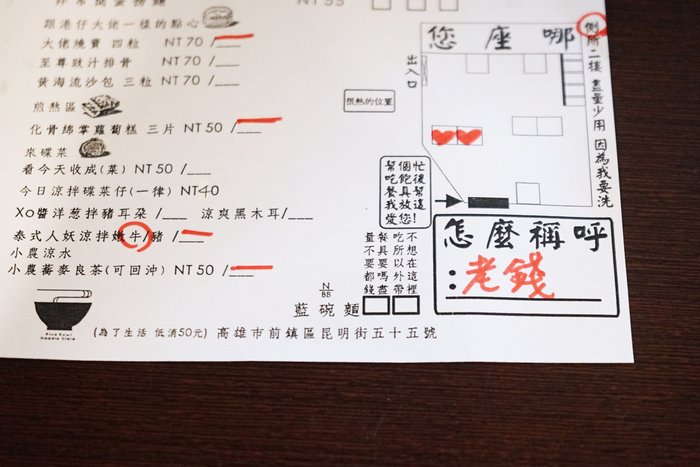 NT 55
跟港仔大佬一樣的點心
大佬燒賣 四粒 NT 70 /___
至尊豉汁排骨 NT 70 /___
黃海流沙包 三粒 NT 70 /___
煎熱區
化骨綿掌蘿蔔糕 三片 NT 50 /___
來碟菜
看今天收成(菜) NT 50 /___
今日涼拌碟菜仔(一律) NT40
Xo醬洋葱拌豬耳朵 /___ 涼爽黑木耳/___
泰式人妖涼拌嫩牛/豬 /___
小農涼水
小農蕎麥良茶(可回沖) NT 50 /___
您座哪
出入口
很熱的位置
側所二樓 盡量少用 因為我要洗
幫個忙
吃飽後
餐具幫
我放這
愛您!
怎麼稱呼
:老錢
吃不在這裡
不想以外帶
餐具所嗎
量不要要都錢盡
N
BB
藍碗麵
Blue Bowl
Noodle Store
(為了生活 低消50元) 高雄市前鎮區昆明街五十五號